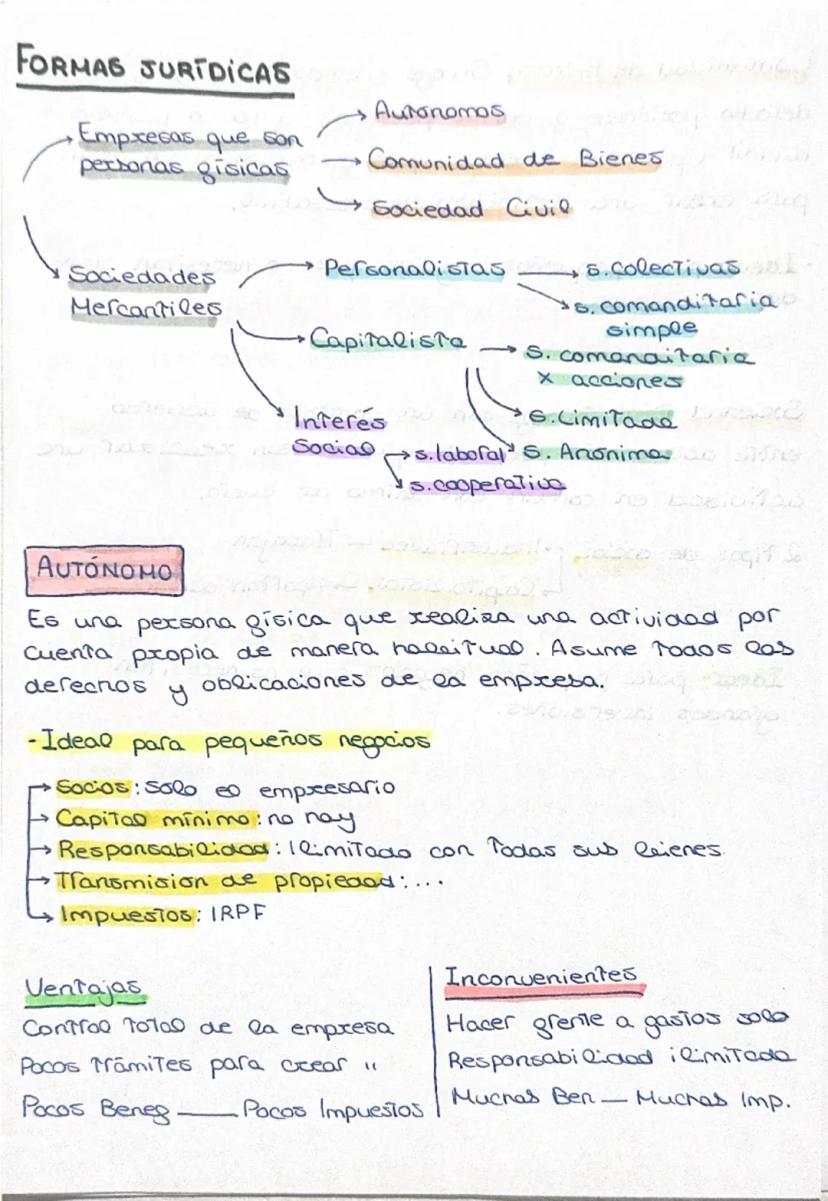 FORMAS JURÍDICAS
Empresas que son
personas físicas
Autónomos
Comunidad de Bienes
Sociedad Civil
Sociedades
Mercantiles
Personalistas
s.colectivas
s.comanditaria
simple
Capitalista
s.comanditaria
x acciones
S.Limitada
S. Anónima
Interés
Social
s.laboral
s.cooperativa
AUTÓNOMO
Es una persona física que realiza una actividad por
cuenta propia de manera habitual. Asume todos los
derechos y oblicaciones de la empresa.
-Ideal para pequeños negocios
Socios: solo el empresario
Capital mínimo: no hay
Responsabilidad: Ilimitada con todas sus bienes.
Transmision de propiedad: ...
Impuestos: IRPF
Ventajas
Control total de la empresa
Pocos trámites para crear "
Pocos Benef —— Pocos Impuestos
Inconvenientes
Hacer frente a gastos solo
Responsabilidad ilimitada
Muchas Ben — Muchas Imp.